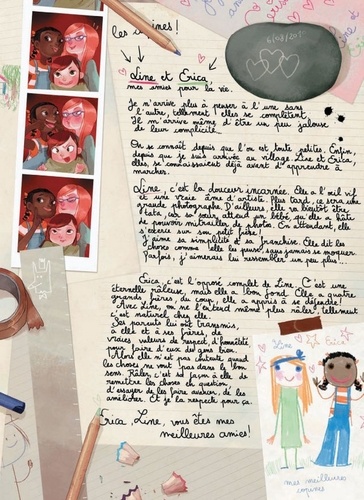 les copines!
6/08/201
Line et Erica,
mes amies pour la vie.
Je n'arrive plus à penser à l'une sans
l'autre, tellement elles se complètent.
Je même d'être un peu jalouse
de leur complicité.
On se connaît depuis que l'on est toute petites. Enfin,
depuis que je suis arrivée au village. Line et Erica,
elles, se connaissaient déjà avant d'apprendre à
marcher.
Line, c'est la douceur incarnée. Elle a l'œil vif
et une vraie âme d'artiste. Plus tard, ce sera une
grande photographe. D'ailleurs, elle va bientôt être
tata, car sa sœur attend un bébé, qu'elle a hâte
de pouvoir mitrailler de photos. En attendant, elle
s'exerce sur son petit frère!
J'aime sa simplicité et sa franchise. Elle dit les
choses comme elle les pense, sans jamais se moquer.
Parfois, j'aimerais lui ressembler un peu plus...
Erica, c'est l'opposé complet de Line. C'est une
éternelle râleuse, mais elle a bon fond. Elle a quatre
grands frères du coup, elle a appris à se défendre.
Avec Line, on ne l'entend même plus râler, tellement
c'est naturel chez elle.
Ses parents lui ont transmis,
à elle et à ses frères, de
vraies valeurs de respect, d'honnêteté,
pour faire d'eux des gens bien.
Alors elle n'est pas contente quand
les choses ne vont pas dans le bon
sens. Râler, c'est sa façon à elle de
remettre les choses en question,
d'essayer de les faire avancer, de les
améliorer. Et je la respecte pour ça.
Erica, Line, vous êtes mes
meilleures amies!
Line
Erica
mes meilleures
copines